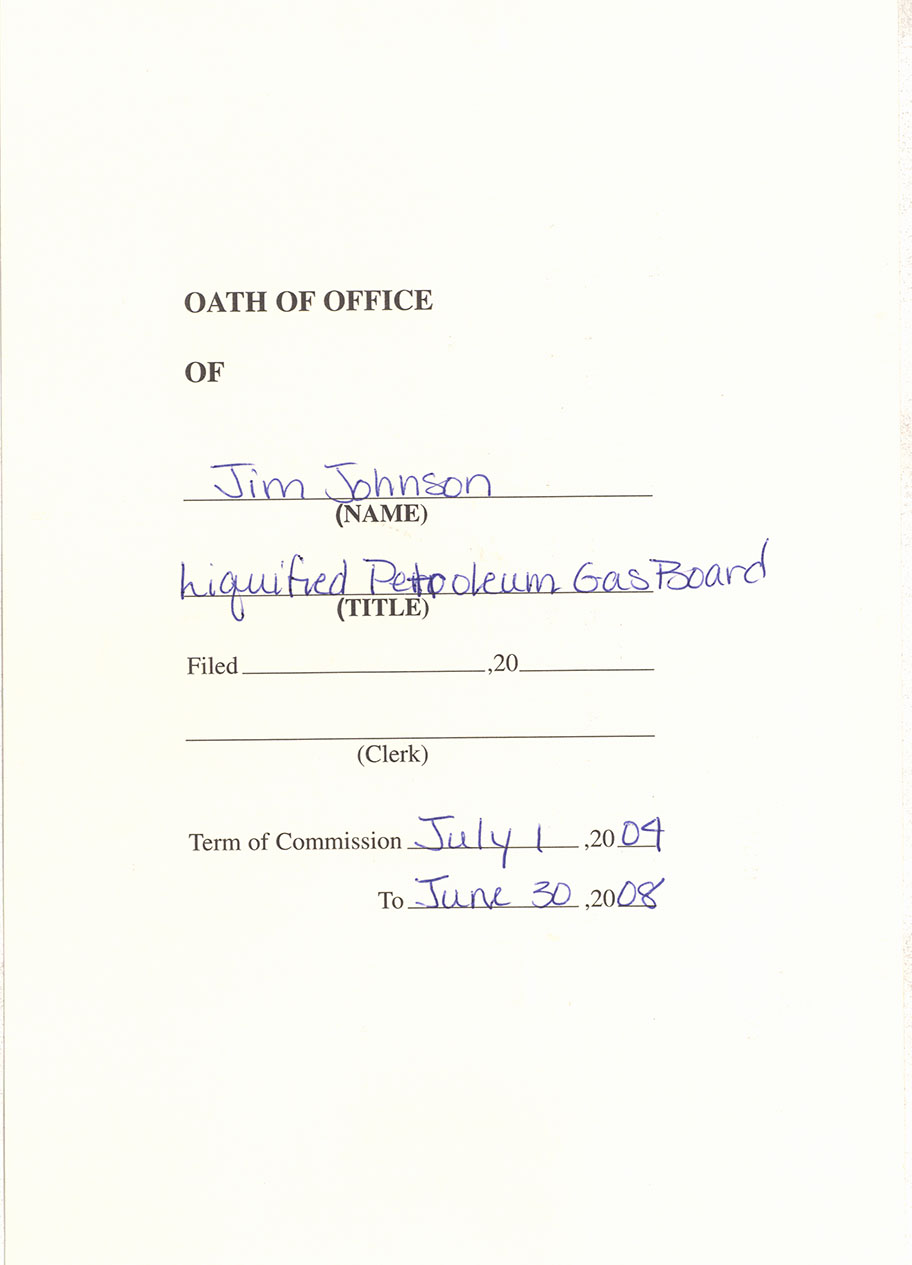 OATH OF OFFICE
OF
Jim Johnson
(NAME)
Liquified Petroleum Gas Board
(TITLE)
Filed ,20
(Clerk)
Term of Commission July 1 ,2004
To June 30 ,2008